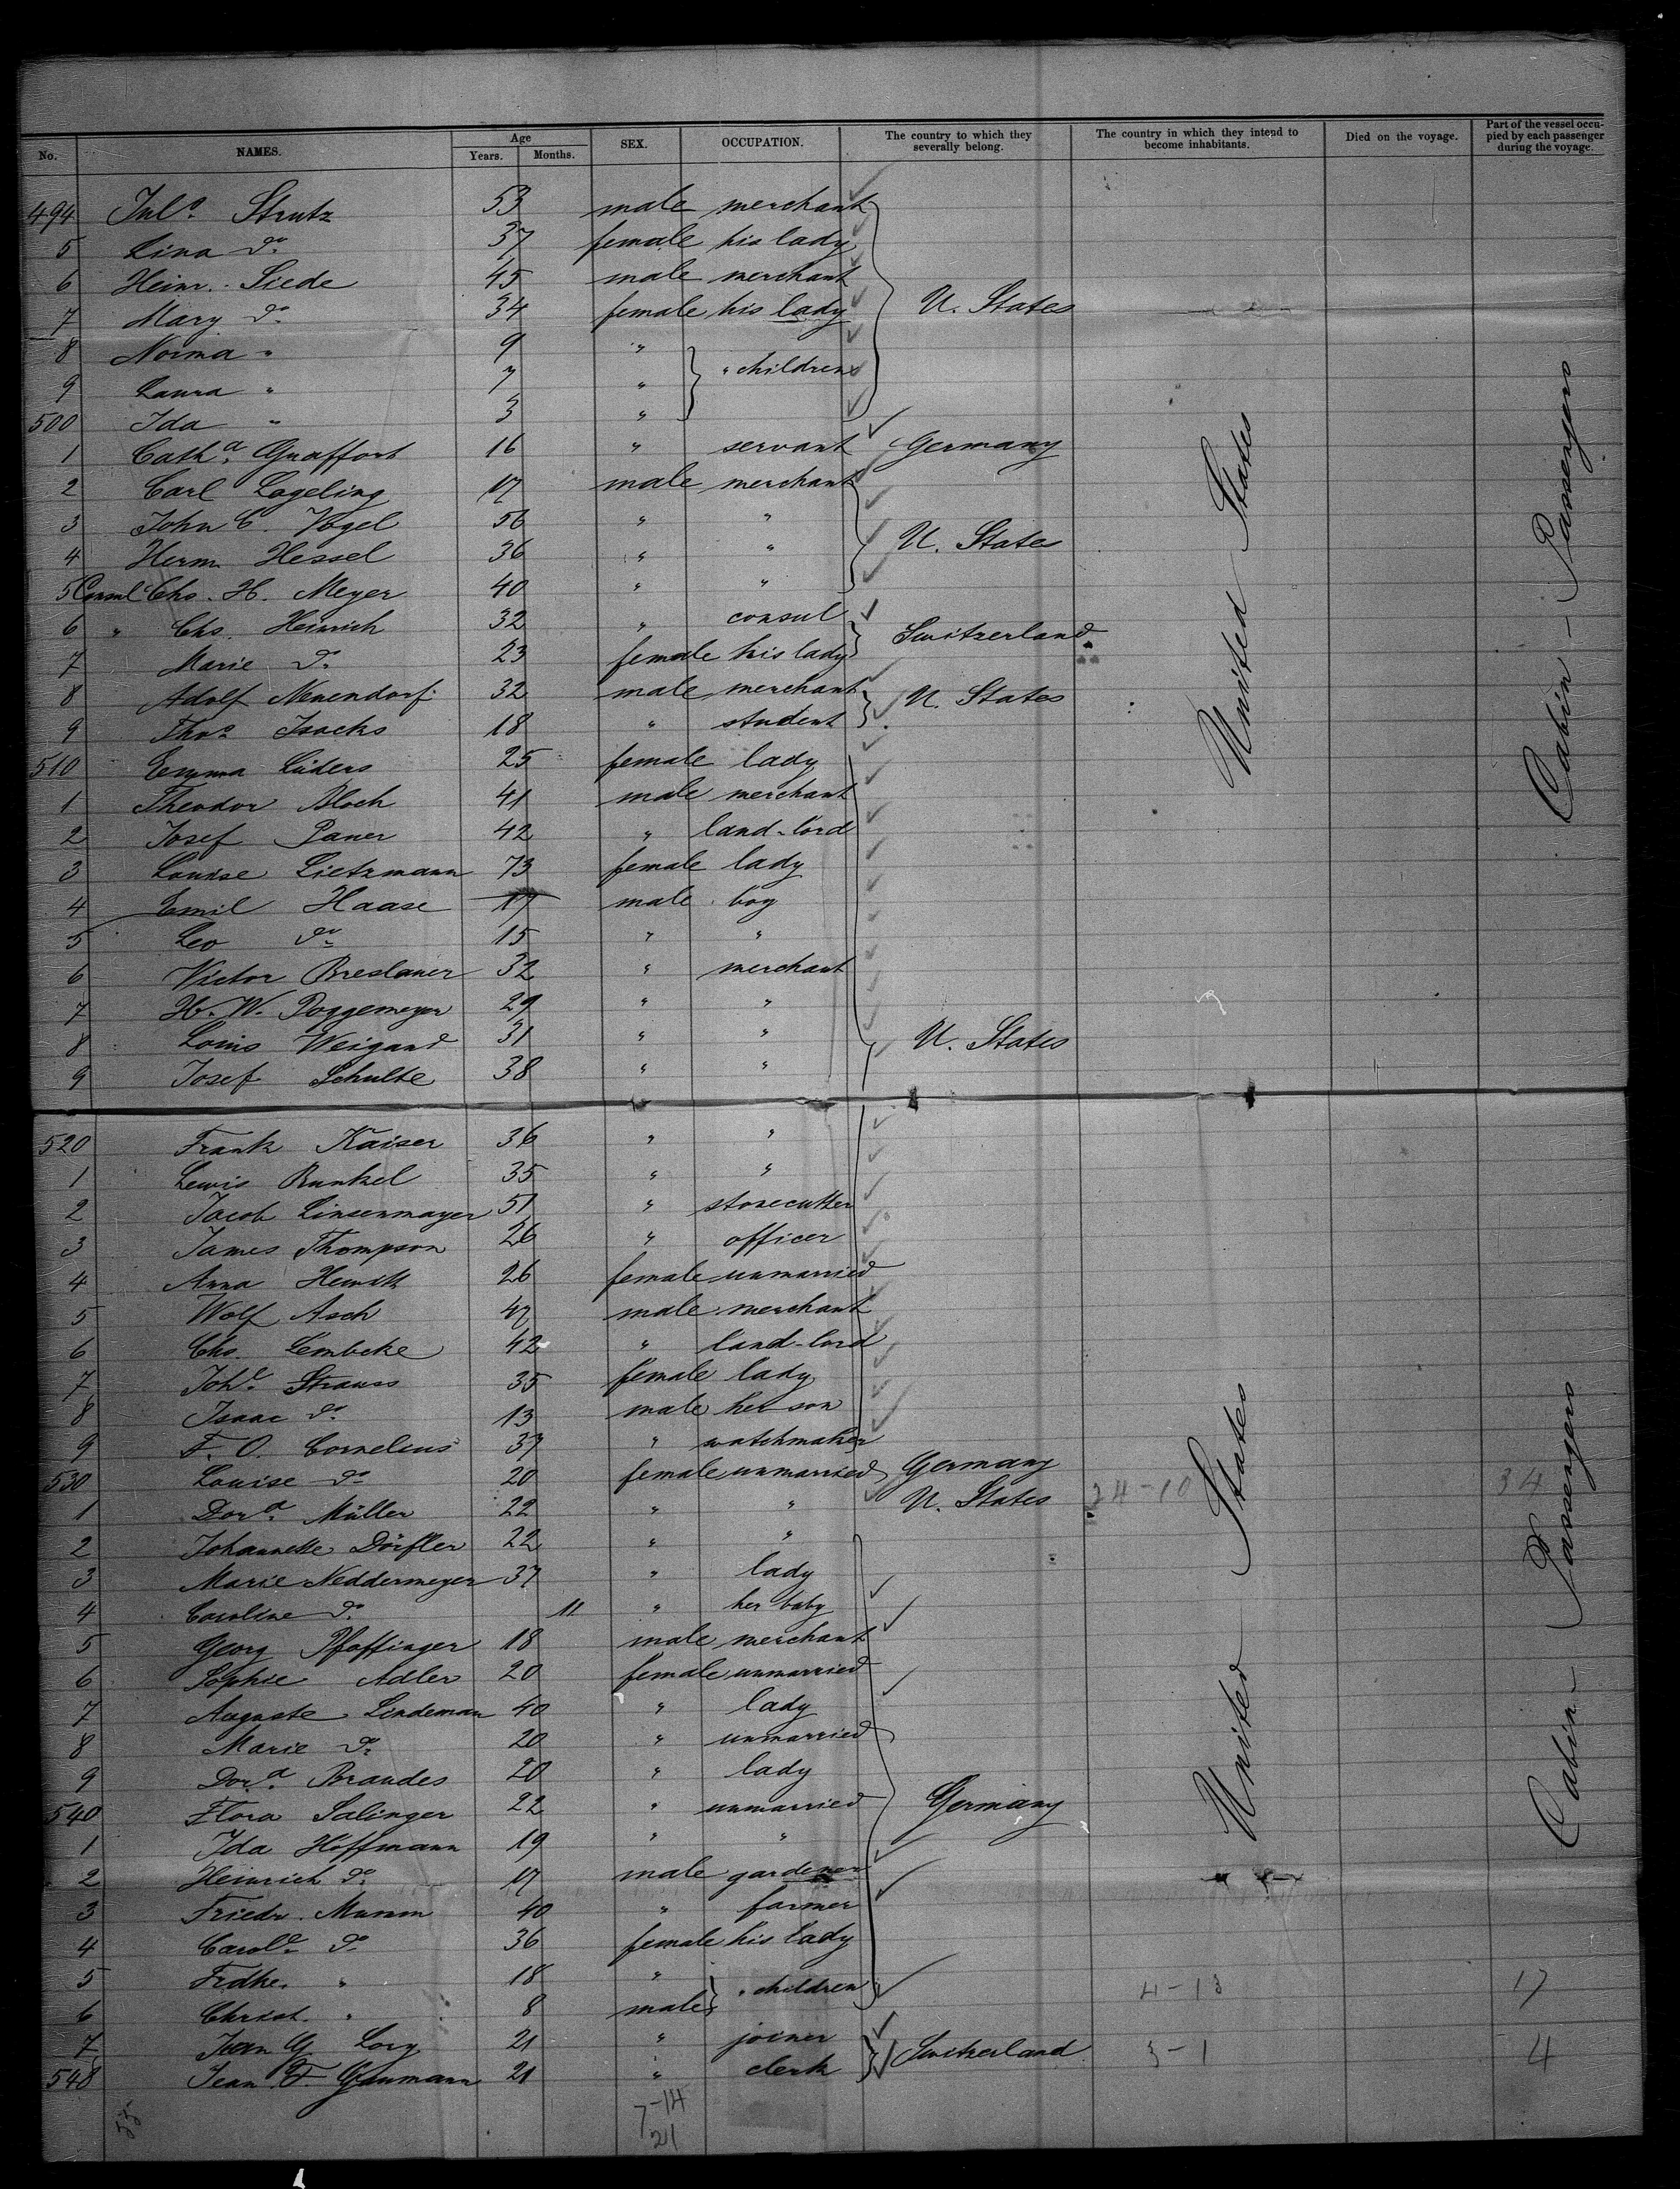 No. NAMES. Age Years. Months. SEX. OCCUPATION. The country to which they severally belong. The country in which they intend to become inhabitants. Died on the voyage. Part of the vessel occupied by each passenger during the voyage.
494 Jul.s Strutz 53 male merchant
5 Lina do. 37 female his lady
6 Heinr. Siede 45 male merchant
7 Mary do. 34 female his lady U. States
8 Norma " 9 "
9 Laura " 7 " " children
500 Ida " 3 "
1 Cath.a Graffort 16 " servant Germany
2 Carl Logeling 17 male merchant
3 John C. Vogel 56 " "
4 Herm. Hessel 36 " " U. States
5 Consul Chs. H. Meyer 40 " "
6 " Chs. Heinrich 32 " consul Switzerland
7 Marie do. 23 female his lady
8 Adolf Neuendorf 32 male merchant U. States
9 Thos. Isacks 18 " student
510 Emma Lüders 25 female lady
1 Theodor Bloch 41 male merchant
2 Josef Paner 42 " land-lord
3 Louise Lietzmann 73 female lady
4 Emil Haase 17 male boy
5 Leo do. 15 " "
6 Victor Breslauer 32 " merchant
7 H. W. Poggemeyer 29 " "
8 Louis Weigand 31 " " U. States
9 Josef Schulte 38 " "
520 Frank Kaiser 36 " "
1 Lewis Runkel 35 " "
2 Jacob Linsenmayer 51 " stonecutter
3 James Thompson 26 " officer
4 Anna Hewitt 26 female unmarried
5 Wolf Asch 47 male merchant
6 Chs. Lembcke 42 " land-lord
7 Joh.e Strauss 35 female lady
8 Isaac do. 13 male her son
9 F. O. Cornelius 37 " watchmaker
530 Louise do. 20 female unmarried Germany
1 Dor.a Müller 22 " " U. States 24-10 34
2 Johannette Dörfler 22 " "
3 Marie Neddermeyer 37 " lady
4 Caroline do. 11 " her baby
5 Georg Pfaffinger 18 male merchant
6 Sophie Adler 20 female unmarried
7 Auguste Lindeman 40 " lady
8 Marie do. 20 " unmarried
9 Dor.a Brandes 20 " lady
540 Flora Salinger 22 " unmarried Germany
1 Ida Hoffmann 19 " "
2 Heinrich do. 17 male gardener
3 Friedr. Mumm 40 " farmer
4 Carol.e do. 36 female his lady
5 Frdke. " 18 " " children 4-13 17
6 Christ. " 8 male
7 Jean G. Lory 21 " joiner Switzerland 3-1 4
548 Jean F. Gaumann 21 " clerk
7-14
21
United States
Cabin - Passengers
United States
Cabin - Passengers